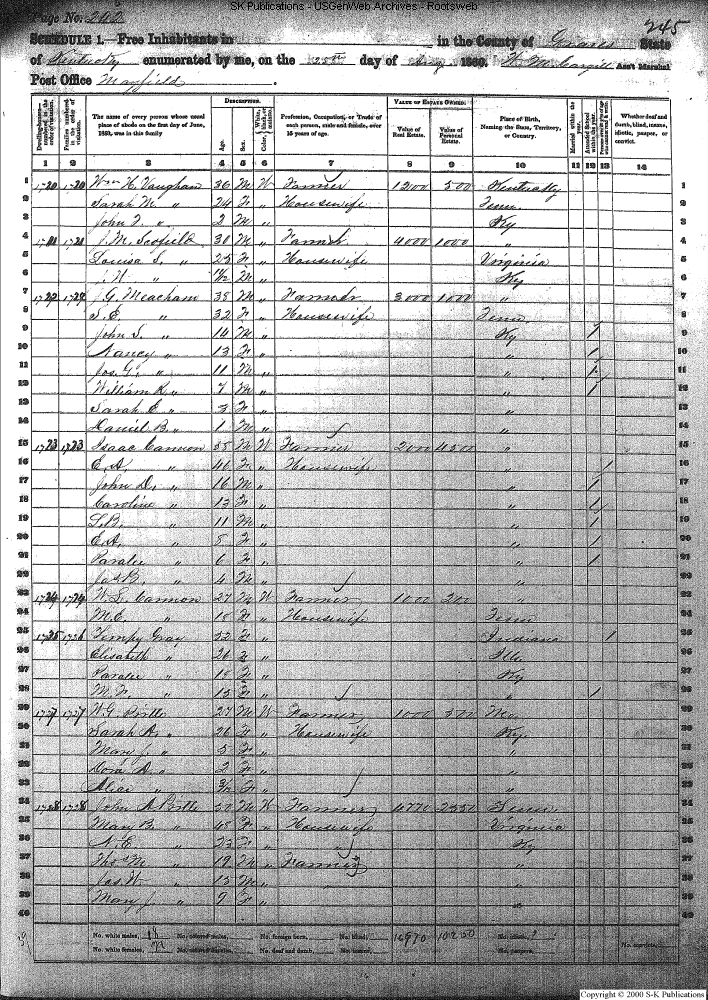 SK Publications - USGenWeb Archives - Rootsweb
Page No. 242
245
SCHEDULE 1.—Free Inhabitants in in the County of Graves State
of Kentucky enumerated by me, on the 25th day of 1860. Ass't Marshal
Post Office Mayfield.
Dwelling-houses—numbered in the order of visitation.
Families numbered in the order of visitation.
The name of every person whose usual place of abode on the first day of June, 1860, was in this family
DESCRIPTION.
Age.
Sex.
Color, White, black, or mulatto.
Profession, Occupation, or Trade of each person, male and female, over 15 years of age.
VALUE OF ESTATE OWNED.
Value of Real Estate.
Value of Personal Estate.
Place of Birth, Naming the State, Territory, or Country.
Married within the year.
Attended School within the year.
Whether deaf and dumb, blind, insane, idiotic, pauper, or convict.
1 2 3 4 5 6 7 8 9 10 11 12 13 14
1 1720 1720 Wm H. Vaughan 36 M W Farmer 1200 500 Kentucky 1
2 Sarah M. " 24 F " Housewife Tenn. 2
3 John " 2 M " Ky 3
4 1721 1721 J. M. Scofield 30 M " Farmer 4000 1000 " 4
5 Louisa S. " 23 F " Housewife Virginia 5
6 " M " Ky 6
7 1722 1722 J. G. Meacham 38 M " Farmer 3000 1000 " 7
8 S. E. " 32 F " Housewife Tenn 8
9 John S. " 14 M " Ky / 9
10 Nancy " 13 F " " / 10
11 Jos. G. " 11 M " " / 11
12 William R. " 7 M " " / 12
13 Sarah E. " 3 F " " 13
14 Daniel B. " 1 M " " 14
15 1723 1723 Isaac Cannon 55 M W Farmer 200 450 " 15
16 E. A. " 46 F " Housewife " / 16
17 John D. " 16 M " " / 17
18 Caroline " 13 F " " / 18
19 L. B. " 11 M " " / 19
20 E. A. " 8 F " " / 20
21 Paralee " 6 F " " / 21
22 Jas. B. " 4 M " " 22
23 1724 1724 W. L. Cannon 27 M W Farmer 1000 200 " 23
24 M. E. " 18 F " Housewife Tenn 24
25 1725 1726 Tempy Gray 52 F " Indiana / 25
26 Elisabeth " 26 F " Ills. 26
27 Paralee " 18 F " Ky 27
28 M. F. " 15 F " " / 28
29 1727 1727 W. G. 27 M W Farmer 1000 300 Mo. 29
30 Sarah A. " 26 F " Housewife Ky. 30
31 Mary J. " 5 F " " 31
32 Dora A. " 2 F " " 32
33 Alice " F " " 33
34 1728 1728 John A. 50 M W Farmer 4770 2350 Tenn 34
35 Mary B. " 48 F " Housewife Virginia 35
36 N. E. " 23 F " Ky 36
37 Thos M. " 19 M " Farmer " 37
38 Jas. W. " 15 M " " 38
39 Mary J. " 9 F " " 39
40 40
No. white males, 18 No. colored males, No. foreign born, No. blind, 16970 10250 No. idiotic,
No. white females, 21 No. colored females, No. deaf and dumb, No. insane, No. paupers, No. convicts,
Copyright © 2000 S-K Publications